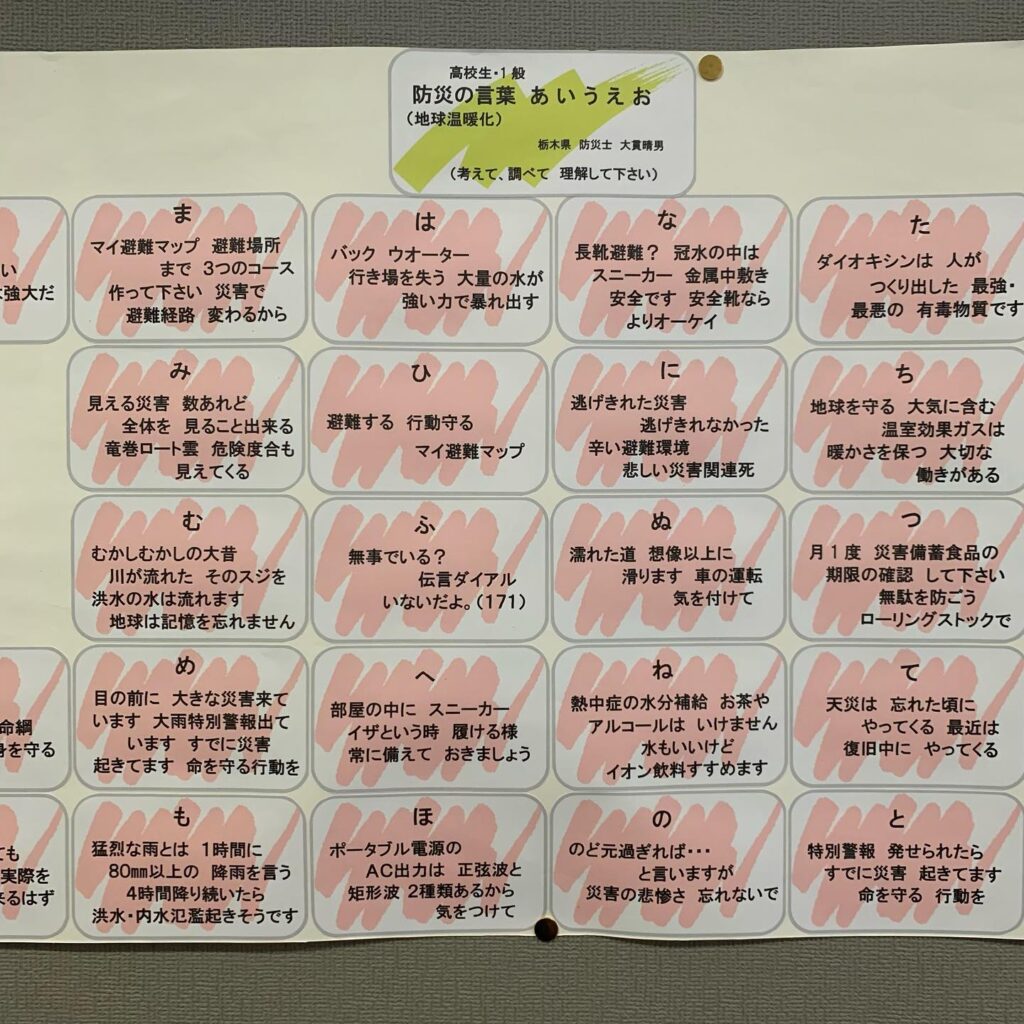 高校生・1般
防災の言葉 あいうえお
(地球温暖化)
栃木県 防災士 大貫晴男
(考えて、調べて 理解して下さい)
た
ダイオキシンは 人が
つくり出した 最強・
最悪の 有毒物質です
ち
地球を守る 大気に含む
温室効果ガスは
暖かさを保つ 大切な
働きがある
つ
月1度 災害備蓄食品の
期限の確認 して下さい
無駄を防ごう
ローリングストックで
て
天災は 忘れた頃に
やってくる 最近は
復旧中に やってくる
と
特別警報 発せられたら
すでに災害 起きてます
命を守る 行動を
な
長靴避難? 冠水の中は
スニーカー 金属中敷き
安全です 安全靴なら
よりオーケイ
に
逃げきれた災害
逃げきれなかった
辛い避難環境
悲しい災害関連死
ぬ
濡れた道 想像以上に
滑ります 車の運転
気を付けて
ね
熱中症の水分補給 お茶や
アルコールは いけません
水もいいけど
イオン飲料すすめます
の
のど元過ぎれば・・・
と言いますが
災害の悲惨さ 忘れないで
は
バック ウオーター
行き場を失う 大量の水が
強い力で暴れ出す
ひ
避難する 行動守る
マイ避難マップ
ふ
無事でいる?
伝言ダイアル
いないだよ。(171)
へ
部屋の中に スニーカー
イザという時 履ける様
常に備えて おきましょう
ほ
ポータブル電源の
AC出力は 正弦波と
矩形波 2種類あるから
気をつけて
ま
マイ避難マップ 避難場所
まで 3つのコース
作って下さい 災害で
避難経路 変わるから
み
見える災害 数あれど
全体を 見ること出来る
竜巻ロート雲 危険度合も
見えてくる
む
むかしむかしの大昔
川が流れた そのスジを
洪水の水は流れます
地球は記憶を忘れません
め
目の前に 大きな災害来て
います 大雨特別警報出て
います すでに災害
起きてます 命を守る行動を
も
猛烈な雨とは 1時間に
80mm以上の 降雨を言う
4時間降り続いたら
洪水・内水氾濫起きそうです
い
強大だ
命綱
を守る
ても
実際を
るはず